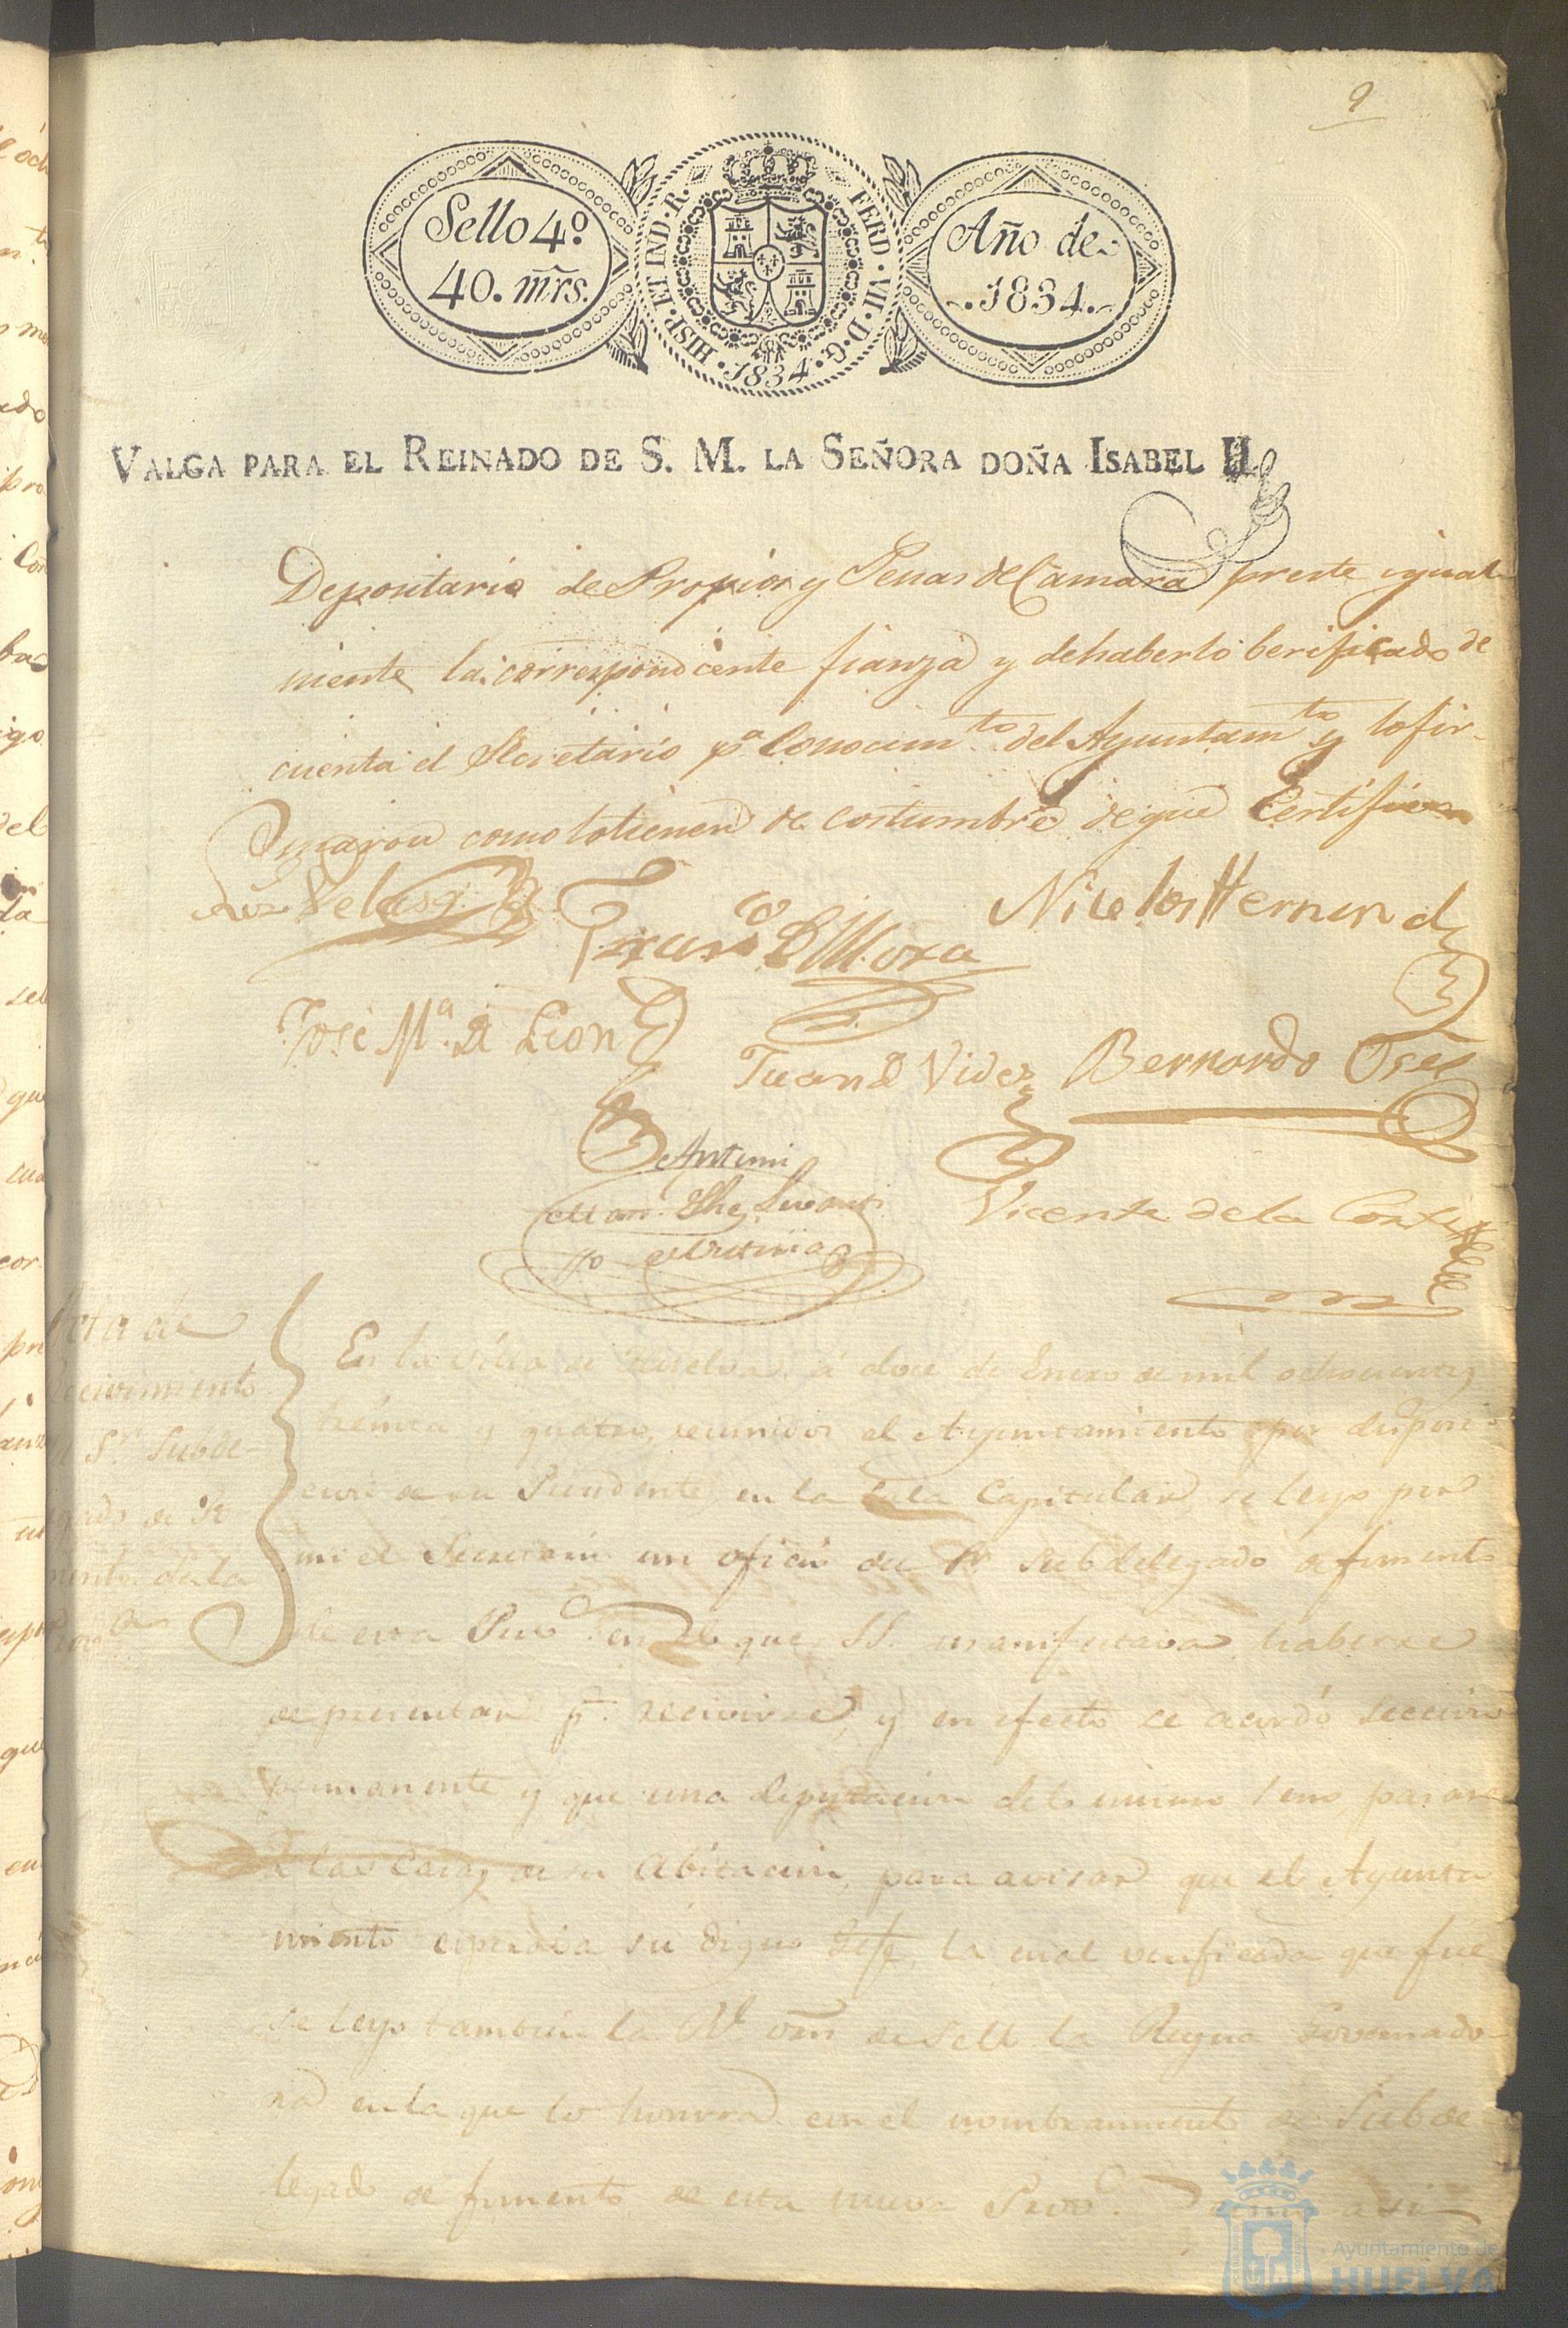 9
Sello 4º
40. mrs.
HISP. ET IND. R. FERD. VII. D. G. 1834.
Año de
1834.
VALGA PARA EL REINADO DE S. M. LA SEÑORA DOÑA ISABEL II.
Depositario de Propios y Penas de Camara preste igual
mente la correspondiente fianza y de haberlo berificado de
cuenta el Secretario pª Conocimto del Ayuntamto y lo fir-
maron como lo tienen de costumbre de que Certifico
Velasqz
Franco de Mora
Nicolas Hernand
José Mª de Leon
Juan de Vides
Bernardo Oses
Antoni
Vicente de la Corte
Acta de
recivimiento
Sr. Subde-
gado de Fo
mento de la
Provª
En la villa de Huelva á doce de Enero de mil ochocientos
treinta y quatro, reunidos el Ayuntamiento por disposi
cion de su Presidente en la Sala Capitular, se leyo por
mi el Secretario un oficio del Sr Subdelegado de fomento
de esta Provª en el que SS. manifestava haberse
de presentar pª recivirse, y en efecto se acordó seccion
permanente y que una diputacion del mismo seno pasara
a las Casas de su Abitacion, para avisar que el Ayunta
miento esperava su digno Gefe, la cual verificada que fue
se leyo tambien la Rl orn de S. M. la Reyna Governado-
ra en la que lo honrra con el nombramiento de Subde-
legado de fomento de esta nueva Provª. asi
Ayuntamiento de
HUELVA